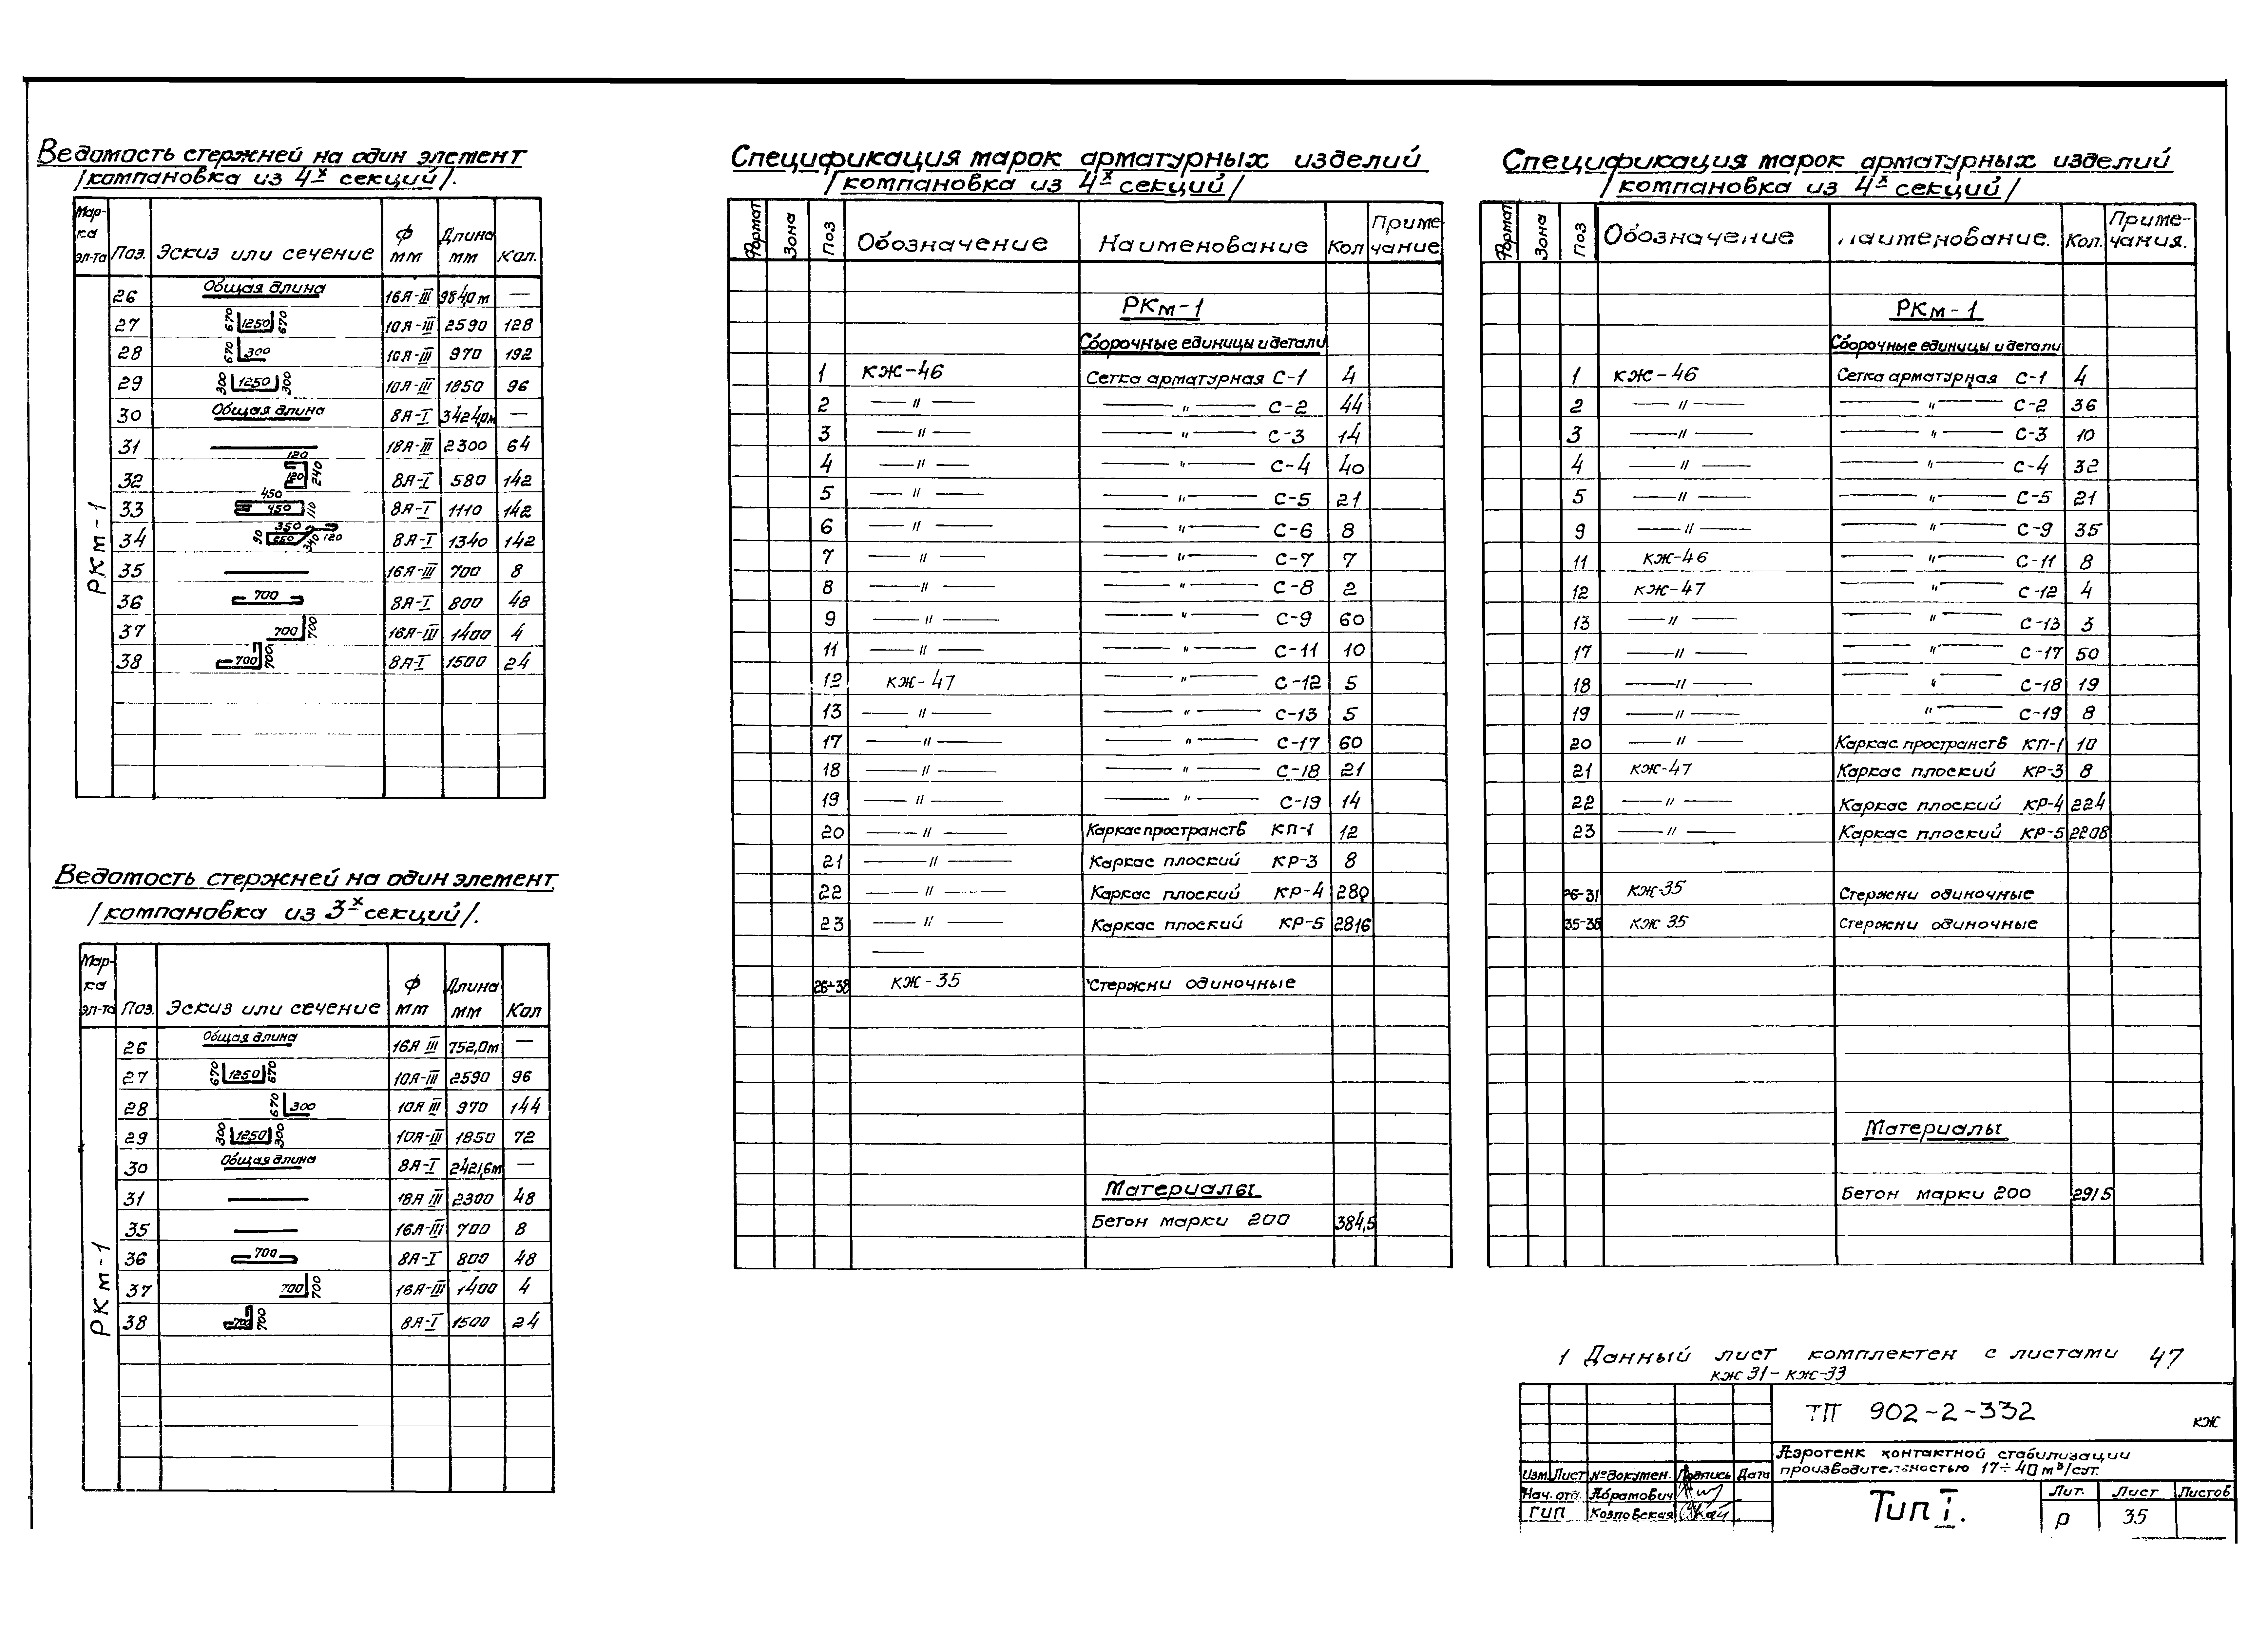 Ведомость стержней на один элемент
/компановка из 4х секций/.
Мар-ка эл-та Поз. Эскиз или сечение Ф мм Длина мм Кол.
РКм-1
26 Общая длина 16А-III 984,0м —
27 670 1250 670 10А-III 2590 128
28 670 300 10А-III 970 192
29 300 1250 300 10А-III 1850 96
30 Общая длина 8А-I 3424,0м —
31 18А-III 2300 64
32 120 120 240 8А-I 580 142
33 450 450 110 8А-I 1110 142
34 90 350 250 340 120 8А-I 1340 142
35 16А-III 700 8
36 700 8А-I 800 48
37 700 700 16А-III 1400 4
38 700 700 8А-I 1500 24
Ведомость стержней на один элемент
/компановка из 3х секций/.
Мар-ка эл-та Поз. Эскиз или сечение Ф мм Длина мм Кол
РКм-1
26 Общая длина 16А III 752,0м —
27 670 1250 670 10А-III 2590 96
28 670 300 10А III 970 144
29 300 1250 300 10А-III 1850 72
30 Общая длина 8А-I 2421,6м —
31 18А III 2300 48
35 16А-III 700 8
36 700 8А-I 800 48
37 700 700 16А-III 1400 4
38 700 700 8А-I 1500 24
Спецификация марок арматурных изделий
/компановка из 4х секций/
Формат Зона Поз Обозначение Наименование Кол Приме-чание
РКм-1
Сборочные единицы и детали
1 КЖ-46 Сетка арматурная С-1 4
2 —〃— —〃— С-2 44
3 —〃— —〃— С-3 14
4 —〃— —〃— С-4 40
5 —〃— —〃— С-5 21
6 —〃— —〃— С-6 8
7 —〃— —〃— С-7 7
8 —〃— —〃— С-8 2
9 —〃— —〃— С-9 60
11 —〃— —〃— С-11 10
12 КЖ-47 —〃— С-12 5
13 —〃— —〃— С-13 5
17 —〃— —〃— С-17 60
18 —〃— —〃— С-18 21
19 —〃— —〃— С-19 14
20 —〃— Каркас пространств КП-1 12
21 —〃— Каркас плоский КР-3 8
22 —〃— Каркас плоский КР-4 280
23 —〃— Каркас плоский КР-5 2816
—
26-38 КЖ-35 Стержни одиночные
Материалы
Бетон марки 200 384,5
Спецификация марок арматурных изделий
/компановка из 4х секций/
Формат Зона Поз Обозначение Наименование. Кол. Приме-чания.
РКм-1
Сборочные единицы и детали
1 КЖ-46 Сетка арматурная С-1 4
2 —〃— —〃— С-2 36
3 —〃— —〃— С-3 10
4 —〃— —〃— С-4 32
5 —〃— —〃— С-5 21
9 —〃— —〃— С-9 35
11 КЖ-46 —〃— С-11 8
12 КЖ-47 —〃— С-12 4
13 —〃— —〃— С-13 3
17 —〃— —〃— С-17 50
18 —〃— —〃— С-18 19
19 —〃— —〃— С-19 8
20 —〃— Каркас пространств КП-1 10
21 КЖ-47 Каркас плоский КР-3 8
22 —〃— Каркас плоский КР-4 224
23 —〃— Каркас плоский КР-5 2208
26-31 КЖ-35 Стержни одиночные
35-38 КЖ 35 Стержни одиночные
Материалы
Бетон марки 200 291 5
1 Данный лист комплектен с листами 47
КЖ 31 – КЖ-33
ТП 902-2-332 КЖ
Аэротенк контактной стабилизации
производительностью 17÷40 м³/сут.
Изм Лист № докумен. Подпись Дата
Нач. отд. Абрамович
ГИП Козловская
Тип I.
Лит. Лист Листов
Р 35